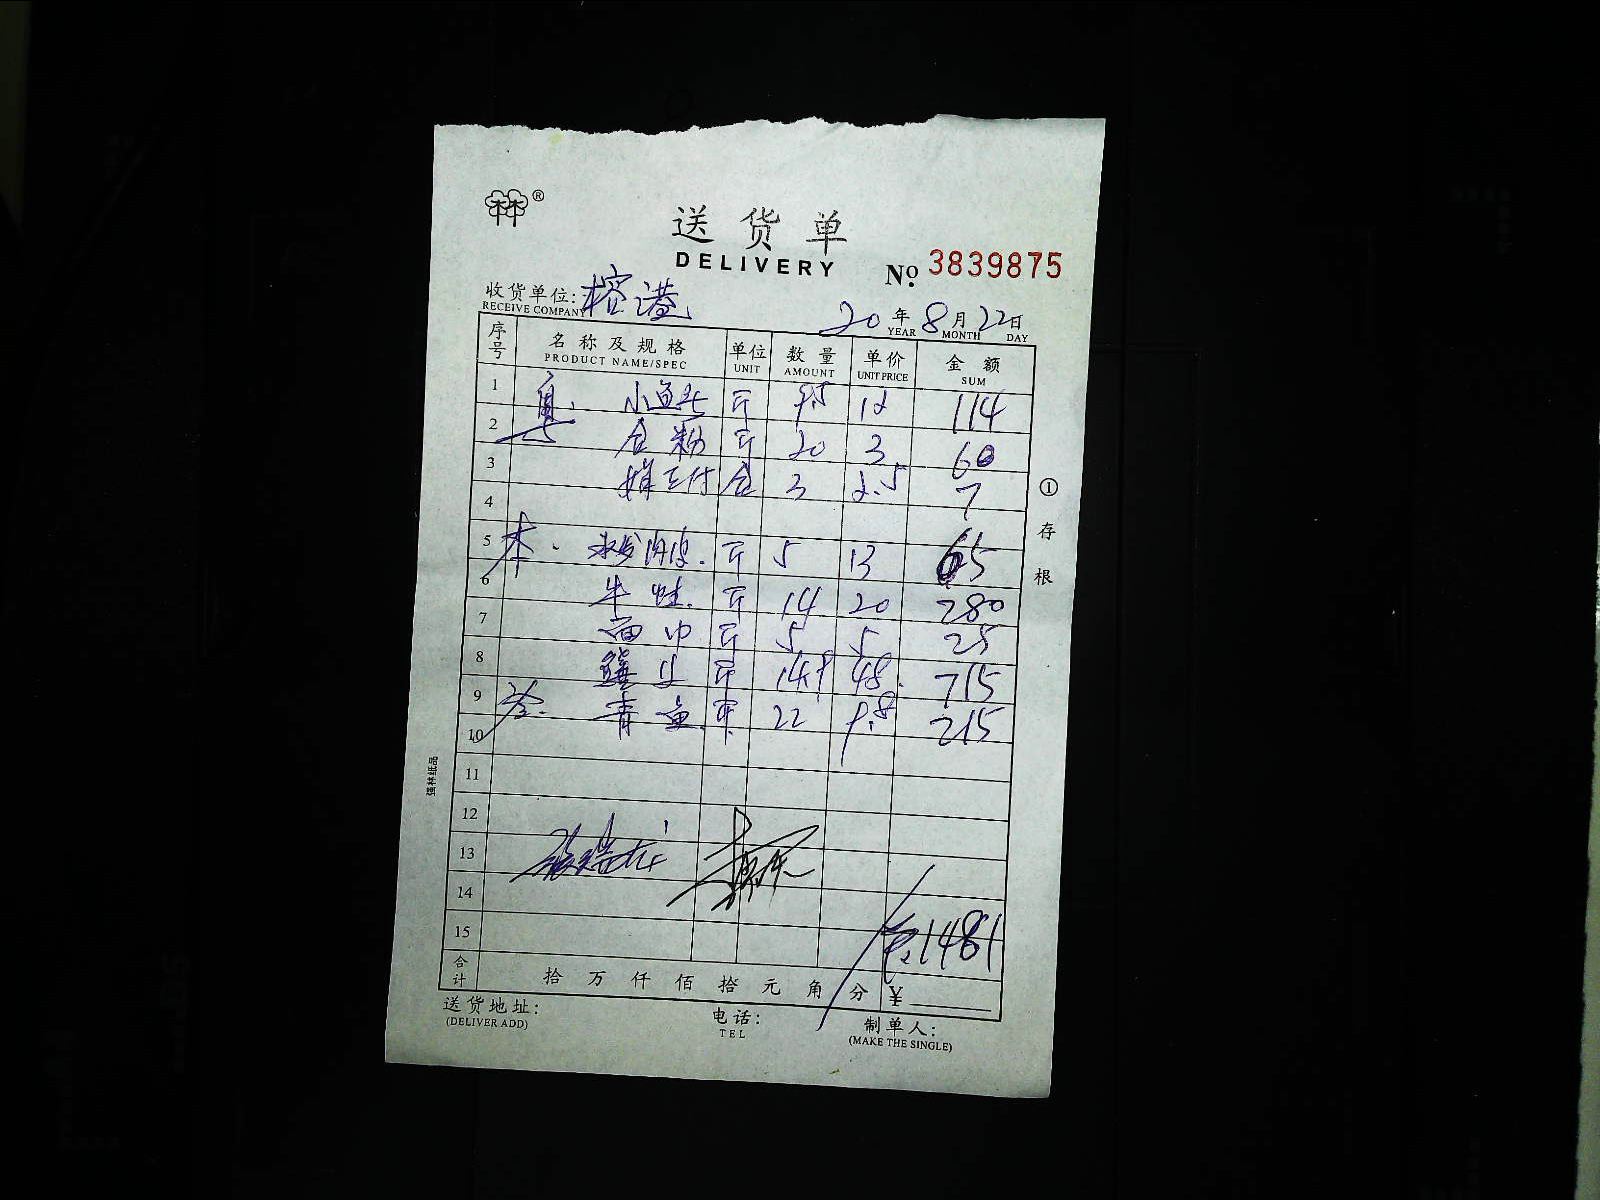 林林®
送货单
DELIVERY
No. 3839875
收货单位: 榕港
RECEIVE COMPANY
20 年 8 月 22 日
YEAR MONTH DAY
序号 名称及规格 单位 数量 单价 金额
PRODUCT NAME/SPEC UNIT AMOUNT UNIT PRICE SUM
1 小鱼 斤 9.5 12 114
2 粉 斤 20 3 60
3 3 2.5 7
4
5 水发 斤 5 13 65
6 牛蛙 斤 14 20 280
7 斤 5 5 25
8 斤 14.9 48 715
9 青鱼 斤 22 9.8 215
10
11
12
13
14
15 1481
合计 拾 万 仟 佰 拾 元 角 分 ¥
送货地址: 电话: 制单人:
(DELIVER ADD) TEL (MAKE THE SINGLE)
①存根
强林纸品